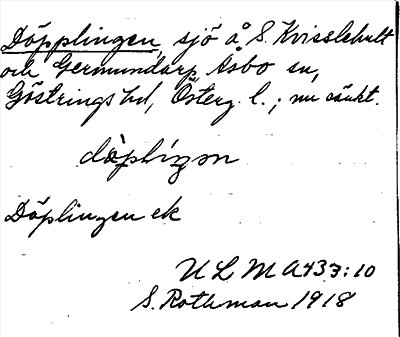 Döpplingen, sjö å S. Kvisslehult
och Germundarp, Åsbo sn,
Göstrings hd, Österg. l.; nu sänkt.
döplingən
Döplingen ek
ULMA 433:10
S. Rothman 1918